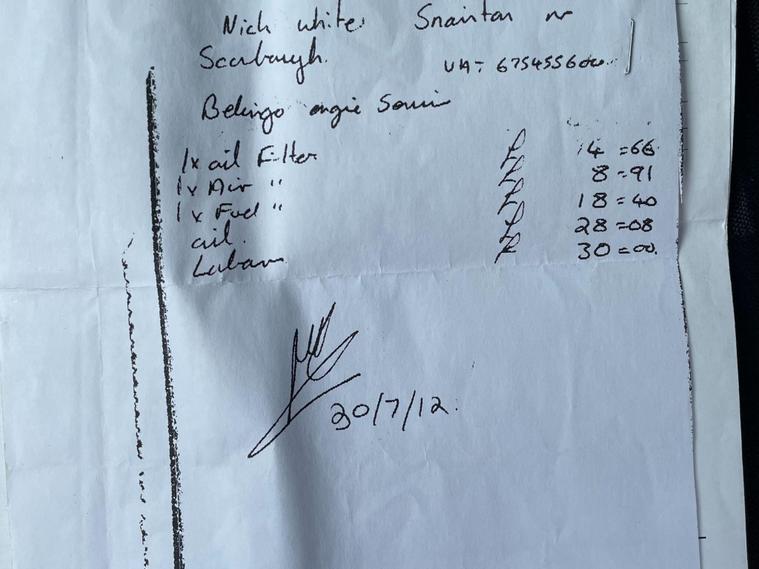 Nich white Snainton nr
Scarbaugh. VAT 675455600
Belingo engie Servic
1x oil Filter £ 14=66
1x Air " £ 8=91
1x Fuel " £ 18=40
oil. £ 28=08
Labour £ 30=00.
30/7/12.